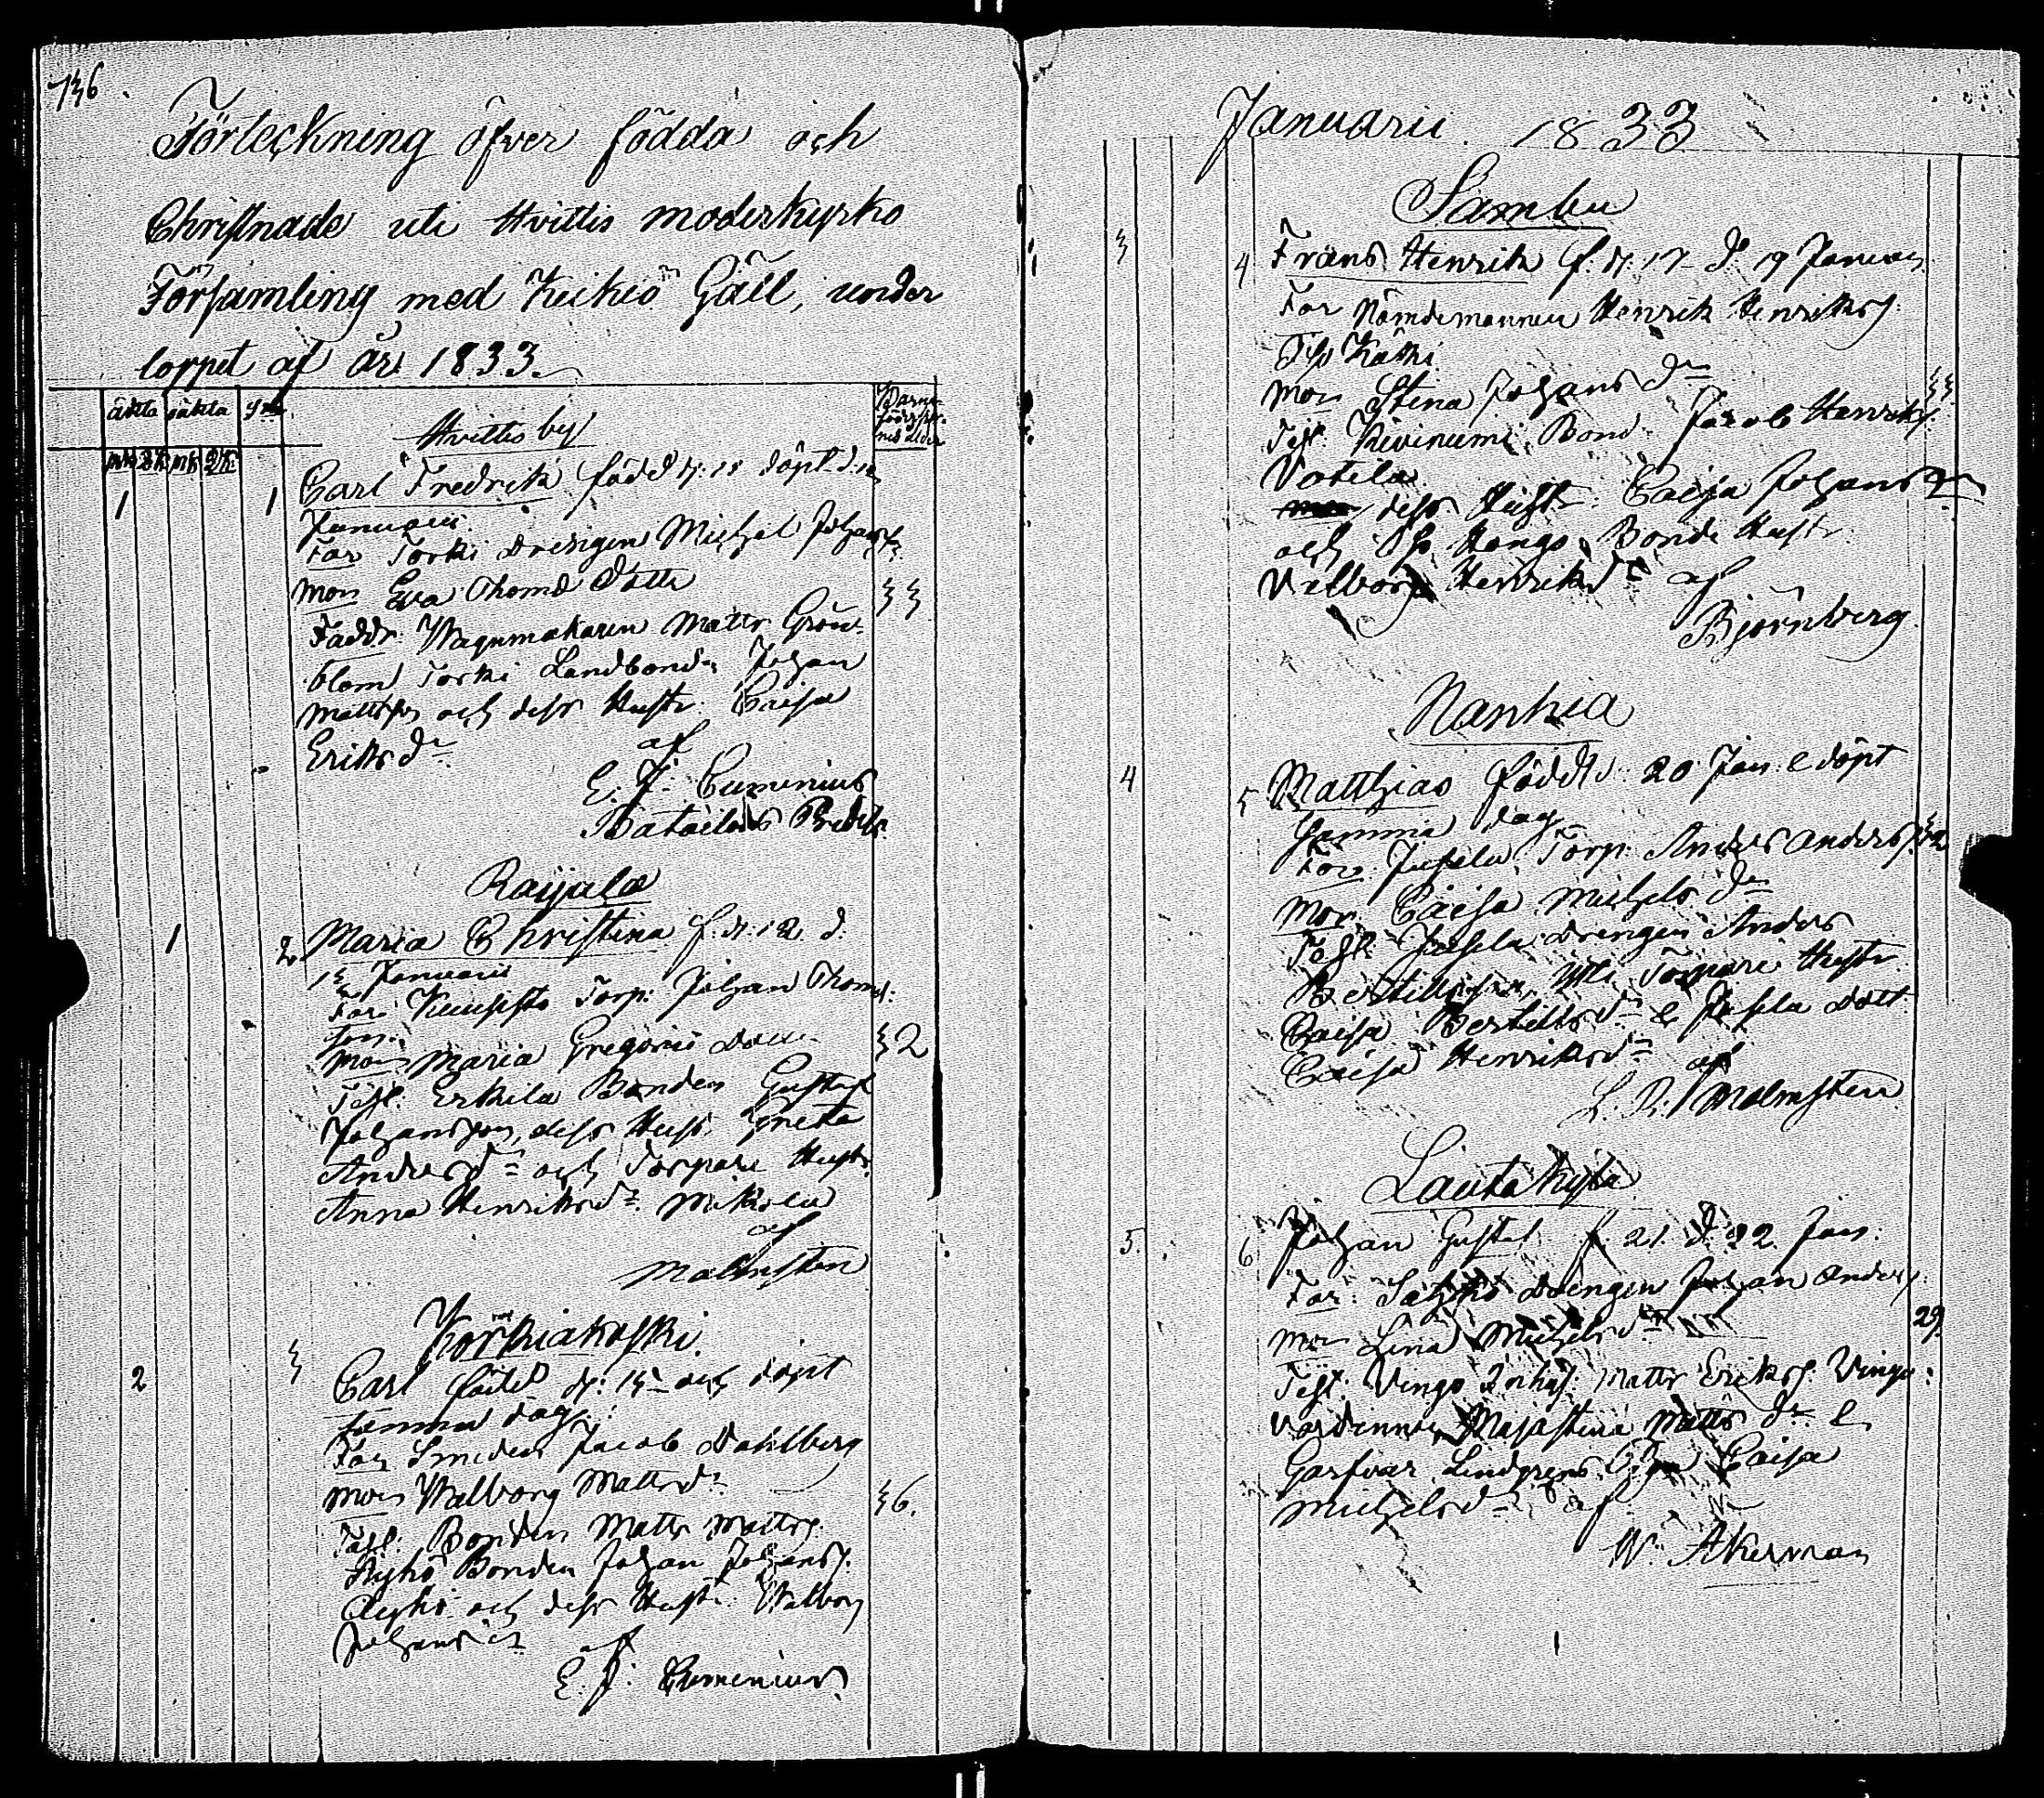 136
Förteckning öfver födda och
Christnade uti Hvittis moderkyrko
Församling med Keikiö Gäll, under
loppet af år 1833.
äkta oäkta
Barna
föderskor
nes ålder
mk qk mk qk
Hvittis by
1 1 Carl Fredrik född d: döpt d:
Januarii
Far Torki Drengen Michel Johansf:
Mor Eva Thomæ Dotter 33
Faddr: Wagnmakaren Matts Grön-
blom Torki Landbonden Johan
Mattsson och dess Hustr: Caisa
Eriksdr
af
E. J. Cumenius
Bataillons Predik:
Raijala
1 2 Maria Christina f. d: 12 d.
13 Januarii
Far Torp: Johan Thomæ
son
Mor Maria Gregorii Dotter 32
Test: Erkila Bonden Gustaf
Johansson, dess Hust: Greta
Andersdr och Torpare Hustr:
Anna Henriksdr
af
Malmsten
Körkiakoski
2 3 Carl född d: 15 och döpt
samma dag
Far Smeden Jacob Dahlberg
Mor Walborg Mattsdr 36.
Test: Bonden Matts Mattsf:
Äijhö Bonden Johan Johansf:
Äijhö och dess Hustr: Walborg
Johansdr
af
E. J. Cumenius
Januarii 1833
Sambu
3 4 Frans Henrik f. d: 17 d. 19 Januarii
Far Nämdemannen Henrik Henriksf:
Kåski
Mor Stina Johansdr 33.
Test: Kiviniemi Bond: Jacob Henriksf:
dess Hustr: Caisa Johansdr
och Hongo Bonde Hustr:
Valborg Henriksdr af
Björnberg
Nanhia
4 5 Matthias född d: 20 Jan: & döpt
samma dag
Far: Jusela Torp: Anders Andersf: 32
Mor: Caisa Michelsdr
Test: Jusela Drengen Anders
Bertillsson, Torpare Hustr:
Caisa Bertillsdr & Jusela Dott:
Caisa Henriksdr af
L. R. Malmsten
Lautakylä
5. 6 Johan Gustaf f. 21. d. 22. Jan:
Far: Drengen Johan Andersf:
Mor Lina Michelsdr 29.
Test: Vingo Inhys: Matts Eriksf: Vingo
Värdinnan Majastina Mattsdr &
Garfvar Lindgrens Caisa
Michelsdr af
W: Åkerman